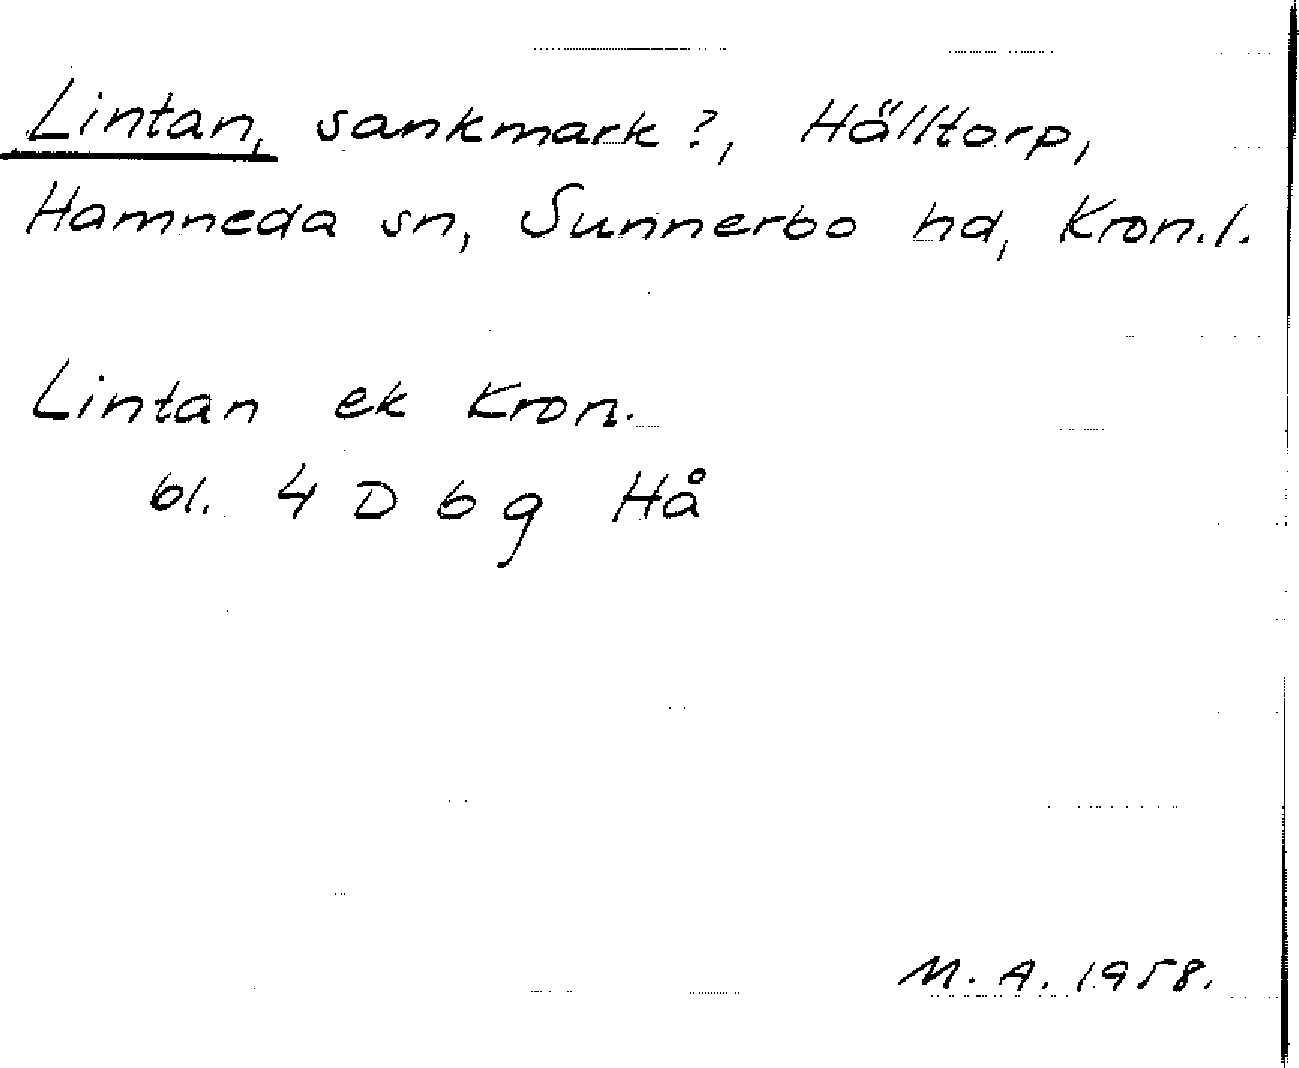 Lintan, sankmark?, Hälltorp,
Hamneda sn, Sunnerbo hd, Kron.l.
Lintan ek Kron.
bl. 4 D b g Hå
M. A. 1958.